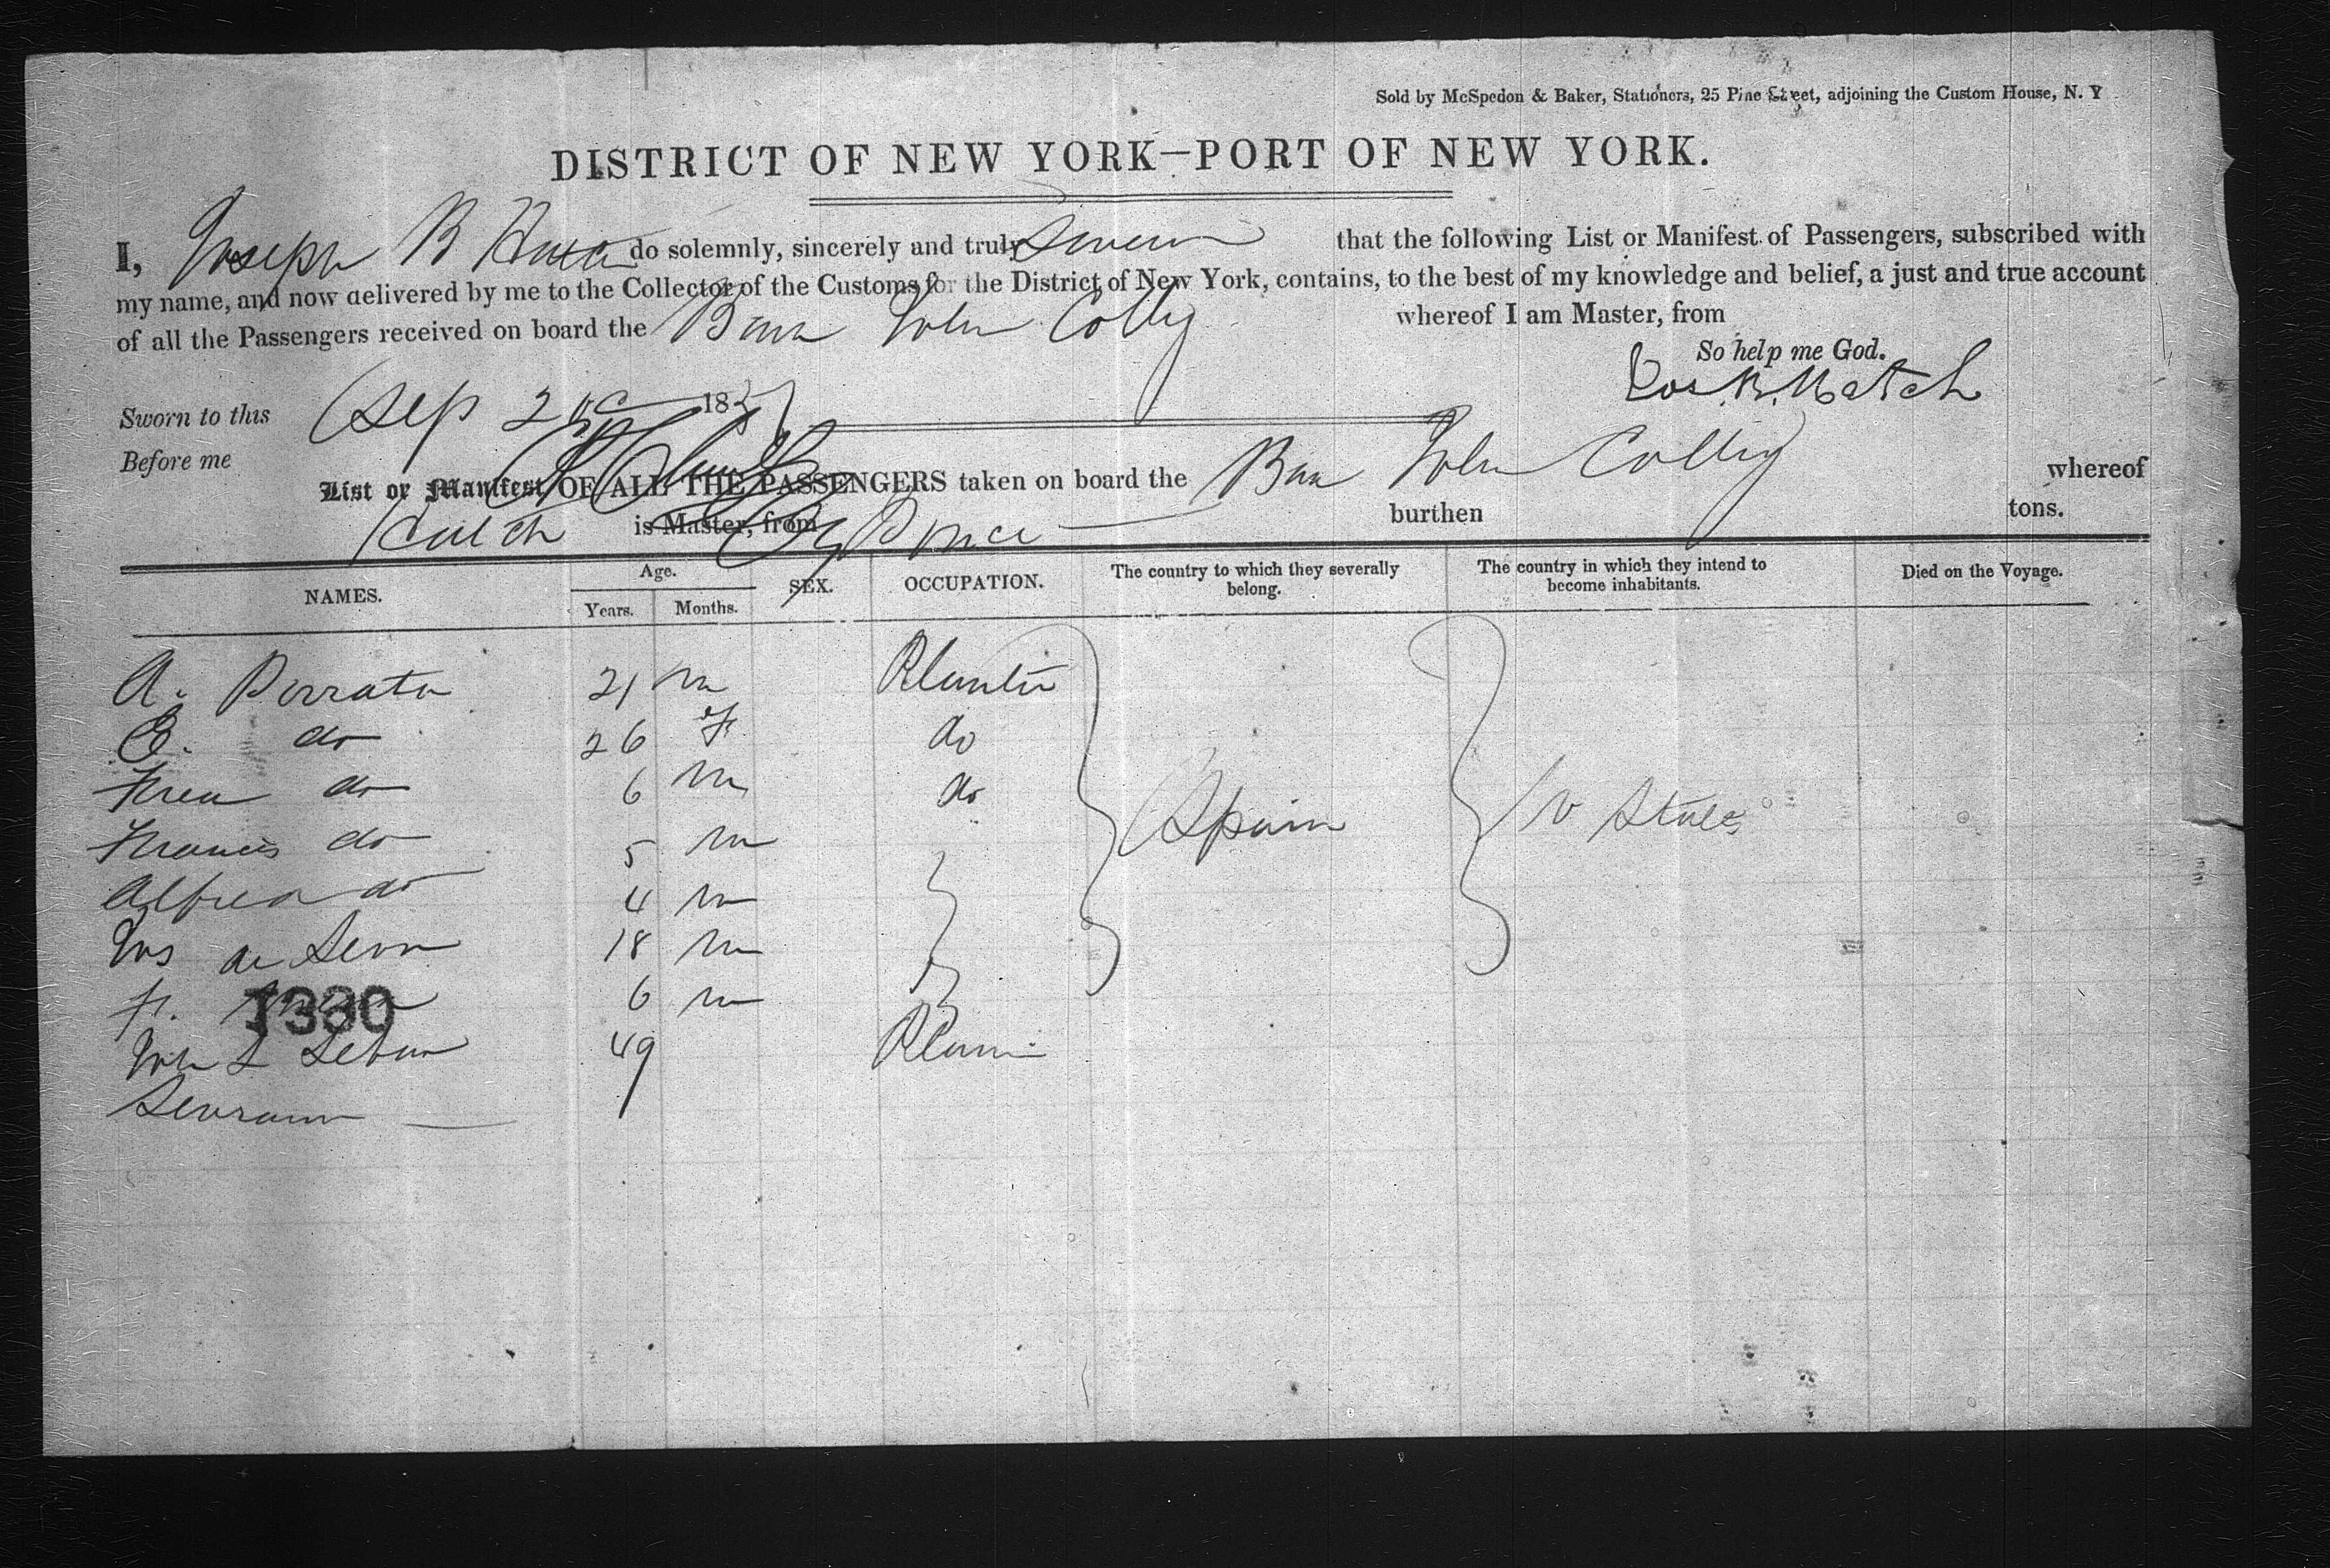 Sold by McSpedon & Baker, Stationers, 25 Pine Street, adjoining the Custom House, N. Y
DISTRICT OF NEW YORK—PORT OF NEW YORK.
I, Joseph B do solemnly, sincerely and truly that the following List or Manifest of Passengers, subscribed with
my name, and now delivered by me to the Collector of the Customs for the District of New York, contains, to the best of my knowledge and belief, a just and true account
of all the Passengers received on board the John Colby whereof I am Master, from
So help me God.
Jos. B. Hatch
Sworn to this Sep 2 185
Before me
List or Manifest OF ALL THE PASSENGERS taken on board the John Colby whereof
Hatch is Master, from Ponce burthen tons.
NAMES. Age. SEX. OCCUPATION. The country to which they severally belong. The country in which they intend to become inhabitants. Died on the Voyage.
Years. Months.
A. Porrata 21 m Planter
E. do 26 f do
Fred do 6 m do
Francis do 5 m Spain U States
Alfred do 4 m
de 18 m
F. 6 m
7380
49